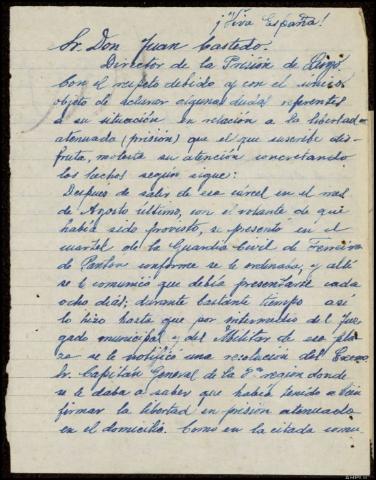 ¡Viva España!
Sr. Don Juan Castedo.
Director de la Prisión de Lugo
Con el respeto debido y con el unico
objeto de aclarar algunas dudas referentes
a su situación en relación a la libertad
atenuada (prisión) que el que suscribe dis-
fruta, molesta su atención concretando
los hechos según sigue:
Después de salir de esa cárcel en el mes
de Agosto último, con el volante de que
había sido provisto, se presentó en el
cuartel de la Guardia Civil de Ferreira
de Pantón conforme se le ordenaba, y allí
se le comunicó que debía presentarse cada
ocho días; durante bastante tiempo así
lo hizo hasta que por intermedio del Juz-
gado municipal y del Militar de esa pla-
za se le notificó una resolución del Excmo.
Sr. Capitán General de la 8ª region donde
se le daba a saber que había tenido a bien
firmar la libertad en prisión atenuada
en el domicilio. Como en la citada comu